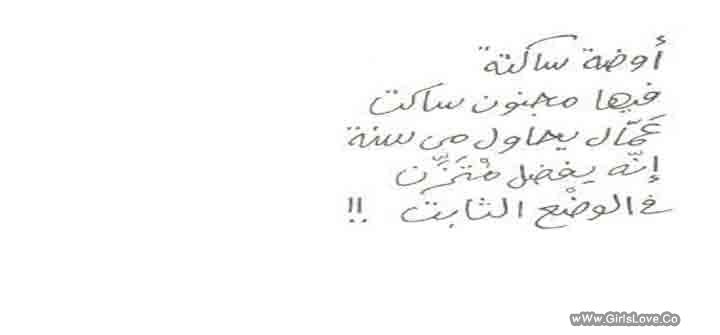 أوضة ساكتة
فيها مجنون ساكت
عَمّال يحاول من سنة
إنّه يفضل مْتَزِّن
في الوضْع الثابت !!
wWw.GirlsLove.Co